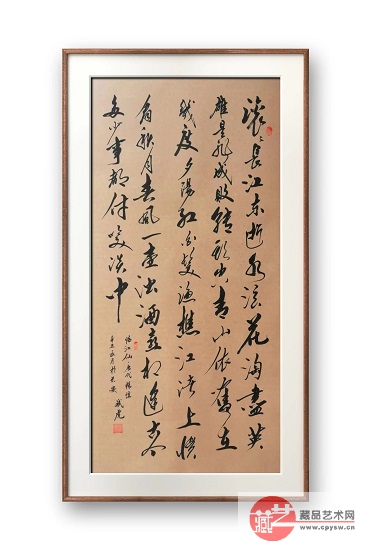 滚滚長江东逝水浪花淘盡英
雄是非成敗转头空青山依舊在
幾度夕陽红白髮渔樵江渚上惯
看秋月春風一壶浊酒喜相逢古今
多少事都付笑谈中
临江仙
辛丑
虎
藏艺
藏品艺术网
www.cpysw.cn